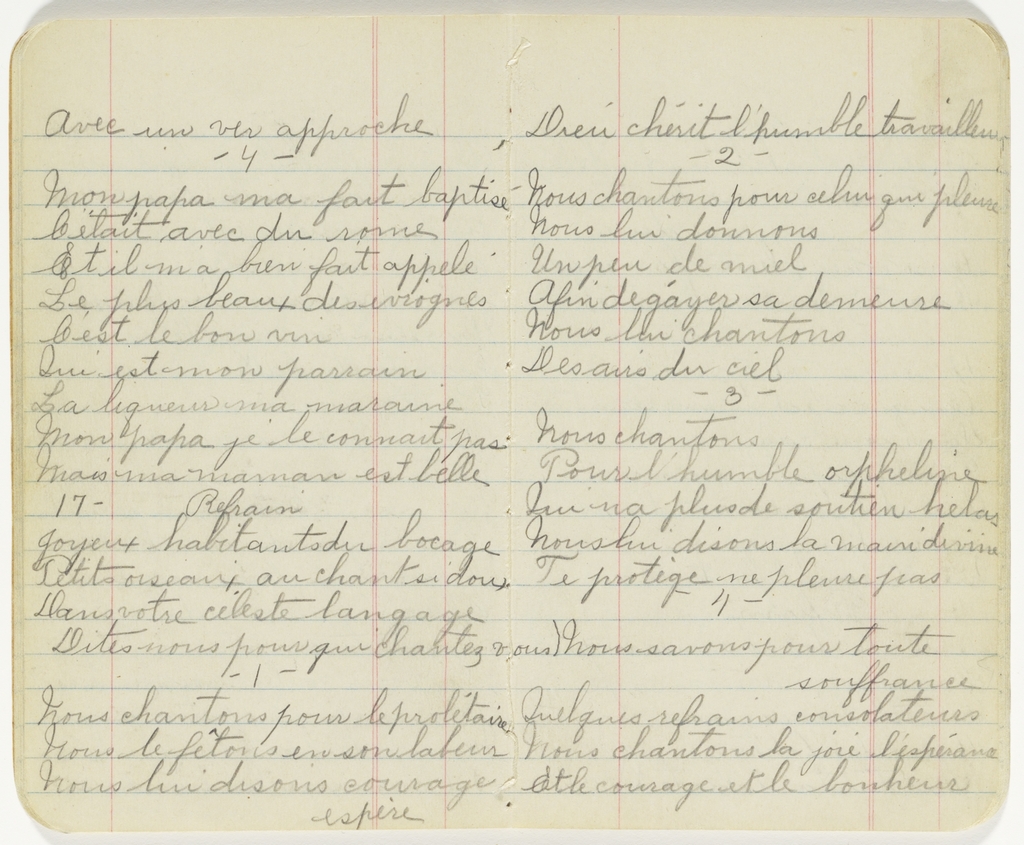 Avec un ver approche
- 4 -
Mon papa ma fait baptisé
C'était avec du rome
Et il m'a bien fait appelé
Le plus beaux des ivrognes
C'est le bon vin
Qui est mon parrain
La liqueur ma maraine
Mon papa je le connait pas
Mais ma maman est belle
17 - Refrain
Joyeux habitants du bocage
Petits oiseaux au chant si doux
Dans votre céleste langage
Dites nous pour qui chantez vous
- 1 -
Nous chantons pour le prolétaire
Nous le fêtons en son labeur
Nous lui disons courage
espère
Dieu chérit l'humble travailleur
- 2 -
Nous chantons pour celui qui pleure
Nous lui donnons
Un peu de miel
Afin degáyer sa demeure
Nous lui chantons
Des airs du ciel
- 3 -
Nous chantons
Pour l'humble orpheline
Qui na plus de soutien helas
Nous lui disons la main divine
Te protège ne pleure pas
- 4 -
Nous savons pour toute
souffrance
Quelques refrains consolateurs
Nous chantons la joie l'espérance
Et le courage et le bonheur